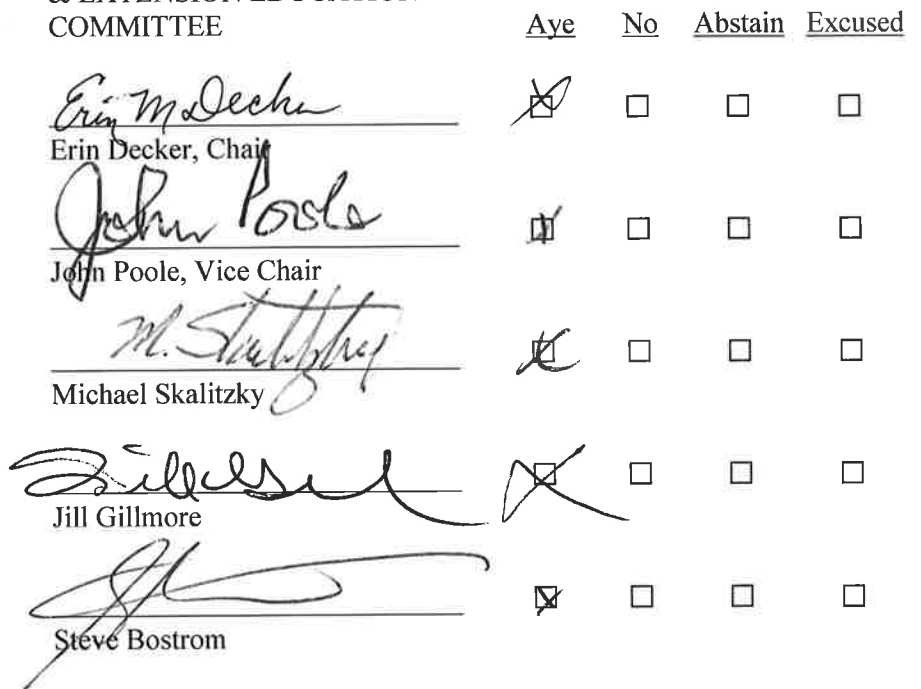 & EXTENSION EDUCATION
COMMITTEE Aye No Abstain Excused
Erin M Decker
Erin Decker, Chair
John Poole
John Poole, Vice Chair
M. Skalitzky
Michael Skalitzky
Jill Gillmore
Steve Bostrom